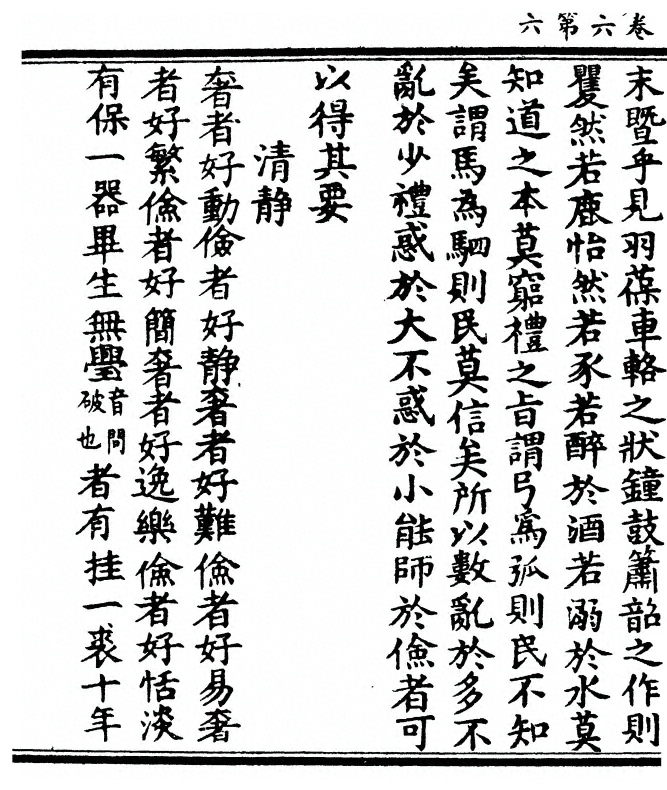 卷六第六
末暨乎見羽葆車輅之狀鐘鼓簫韶之作則
矍然若鹿怡然若豕若醉於酒若溺於水莫
知道之本莫窮禮之旨謂弓爲弧則民不知
矣謂馬為駟則民莫信矣所以數亂於多不
亂於少禮惑於大不惑於小能師於儉者可
以得其要
清静
奢者好動儉者好静奢者好難儉者好易奢
者好繁儉者好簡奢者好逸樂儉者好恬淡
有保一器畢生無璺音問破也者有挂一裘十年